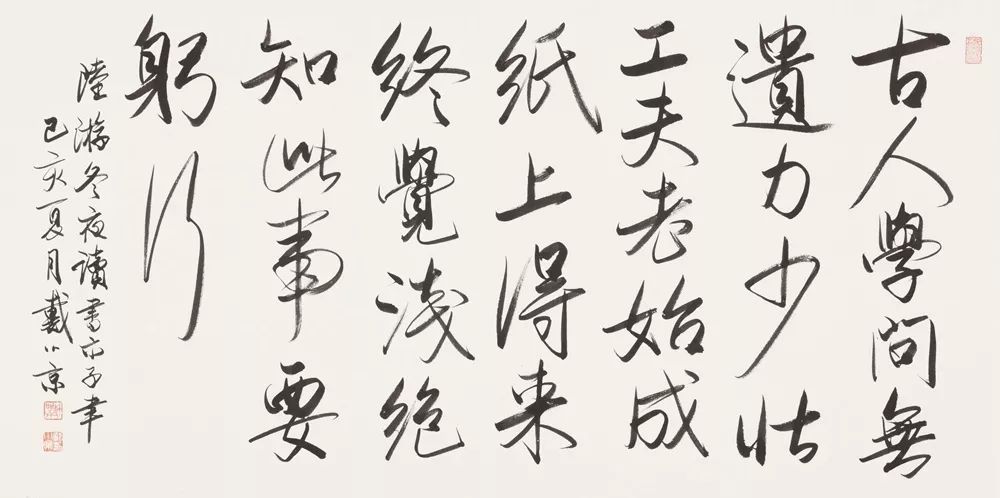 古人學問無
遺力少壯
工夫老始成
紙上得来
終覺淺絶
知此事要
躬行
陸游冬夜讀書示子聿
己亥夏月戴小京